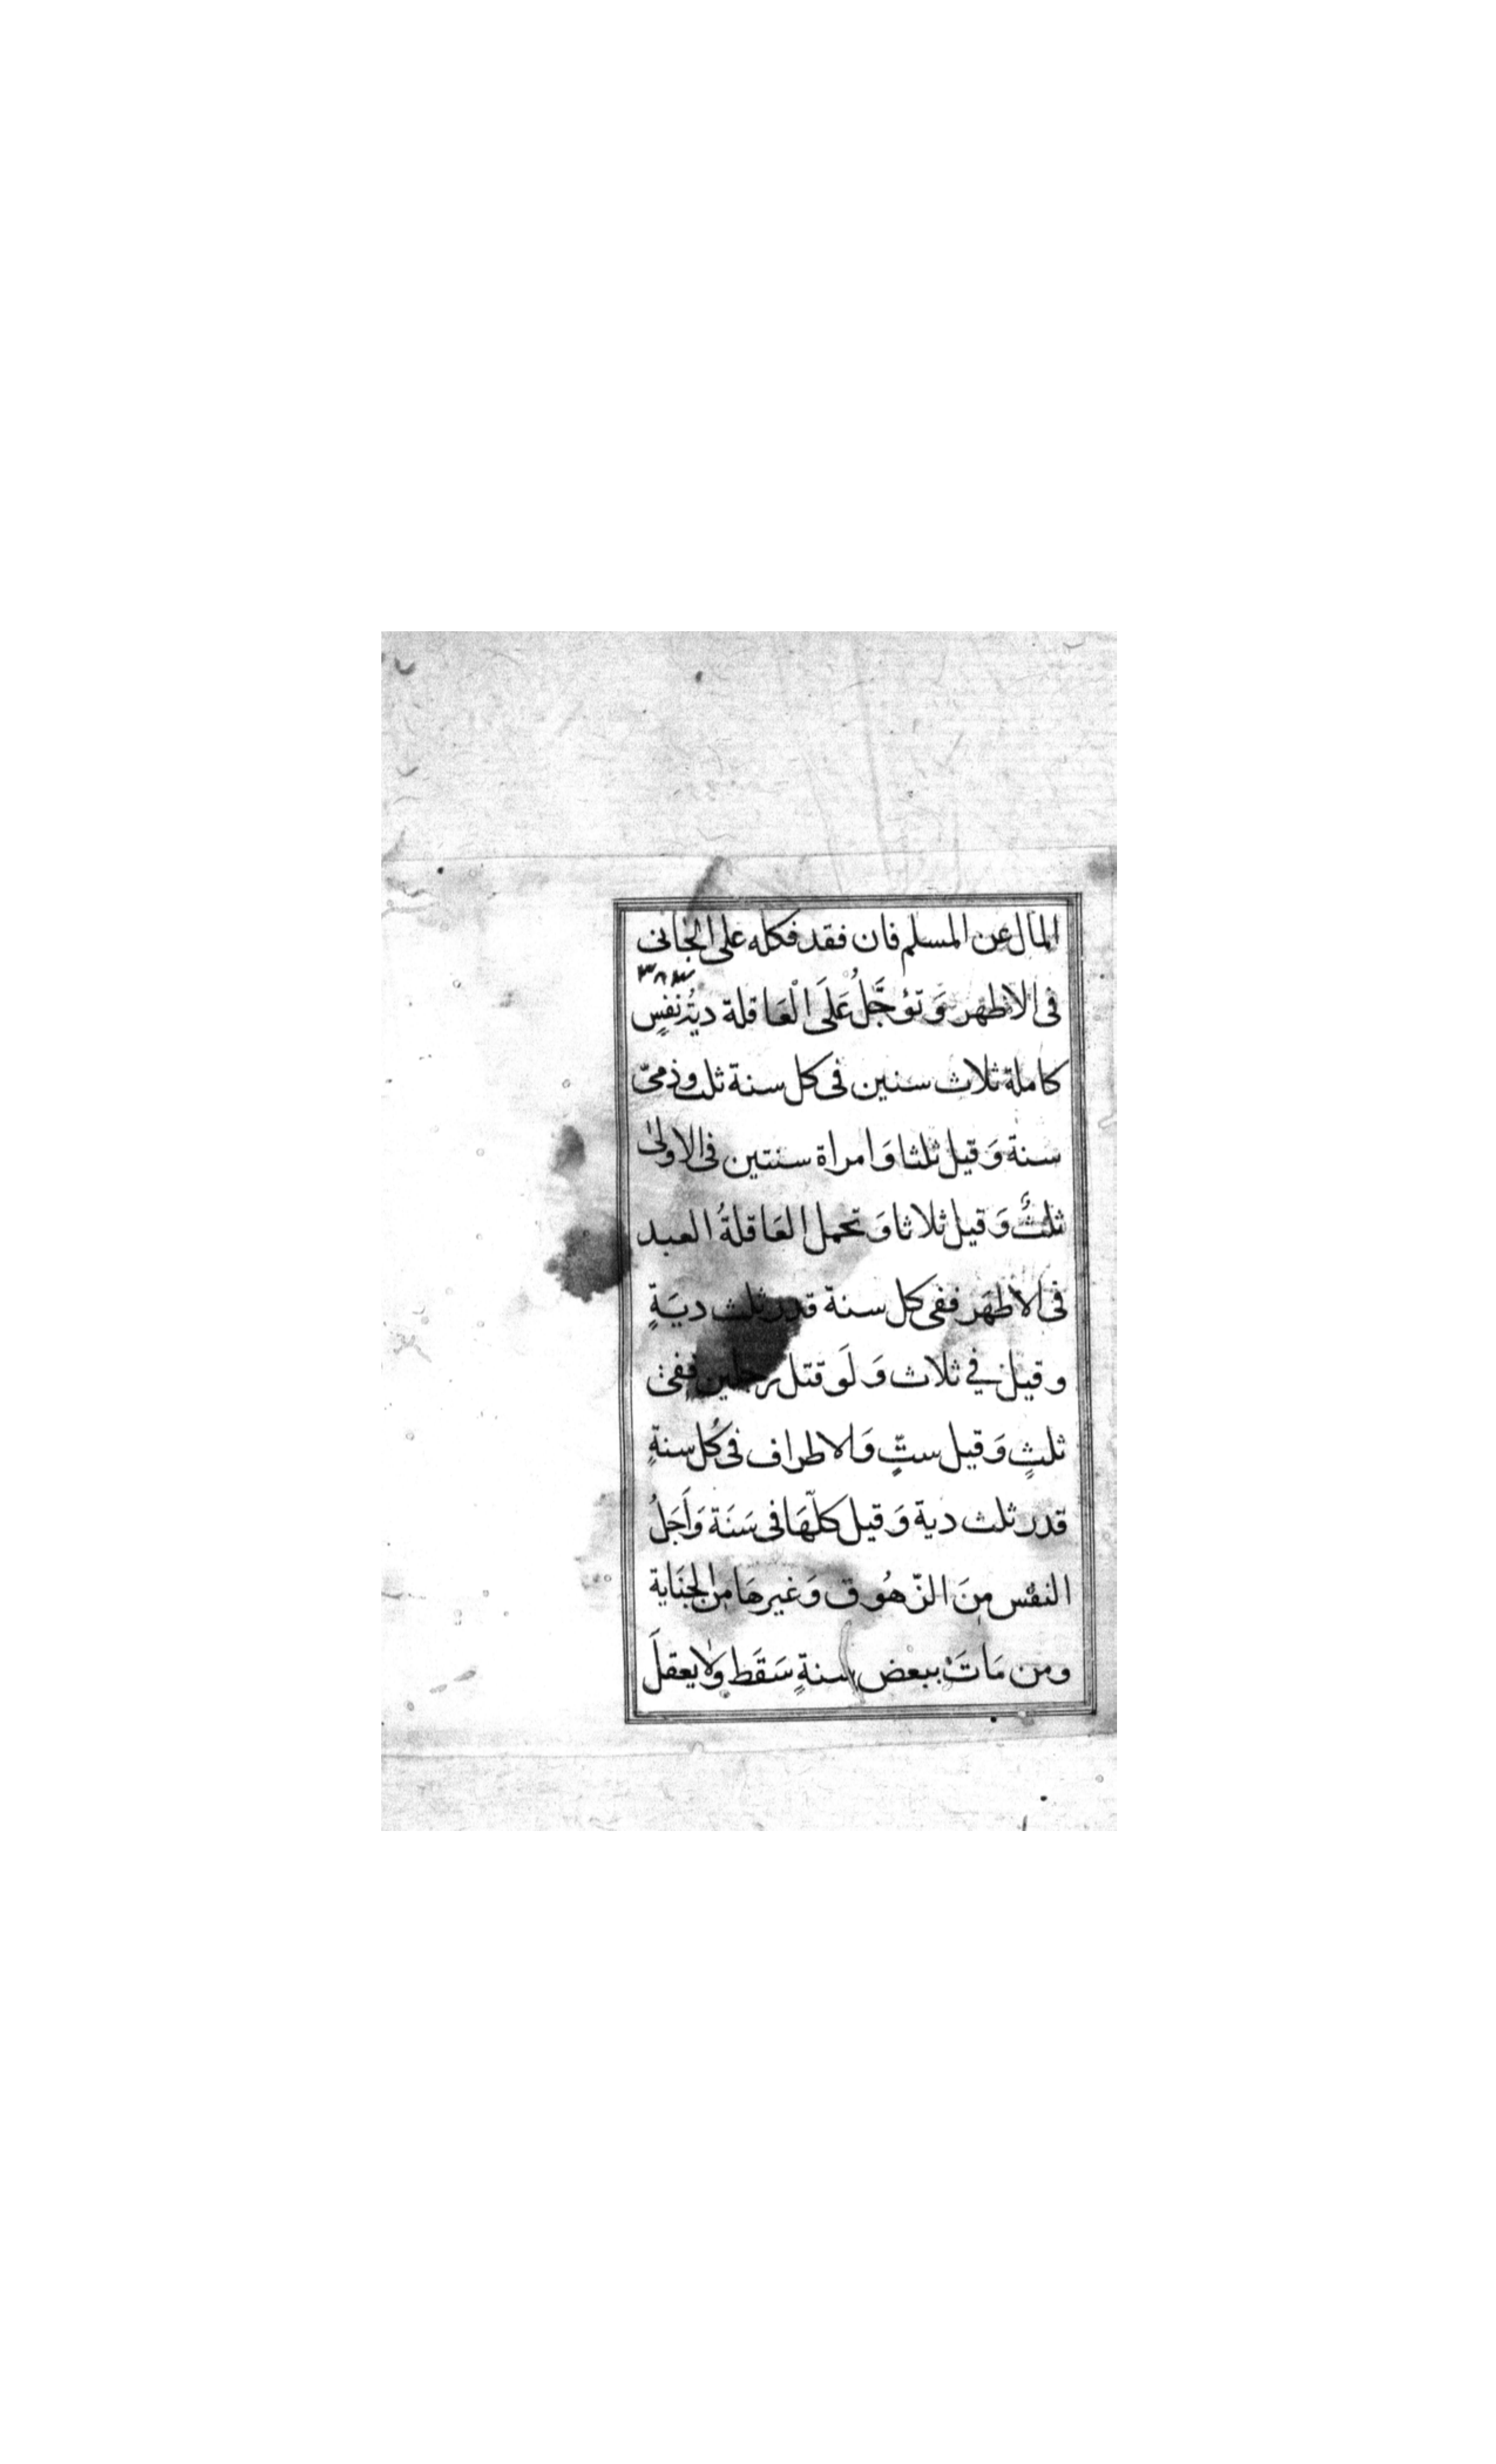 المال عن المسلم فان فقد فكله على الجانى
فى الاظهر وَ تؤجَّلُ عَلَى الْعَاقلة ديةُ نفسٍ
كاملة ثلاث سنين فى كل سنة ثلث وذمىّ
سنة وَقيل ثلثا وَامراة سنتين فى الاولىٰ
ثلثٌ وَ قيل ثلاثا وَ تحمل العَاقلةُ العبد
فى الاظهَر ففى كل سنة قدر ثلث ديَةٍ
و قيل فى ثلاث وَ لَو قتل رجلين ففى
ثلثٍ وَ قيل ستٍّ وَالاطراف فى كُل سنةٍ
قدر ثلث دية وَ قيل كلّهَا فى سَنَة وَأَجَلُ
النفس مِنَ الزّهُوق وَغيرهَا من الجنَاية
ومن مَاتَ ببعض سنةٍ سَقَط وَلا يعقلَ